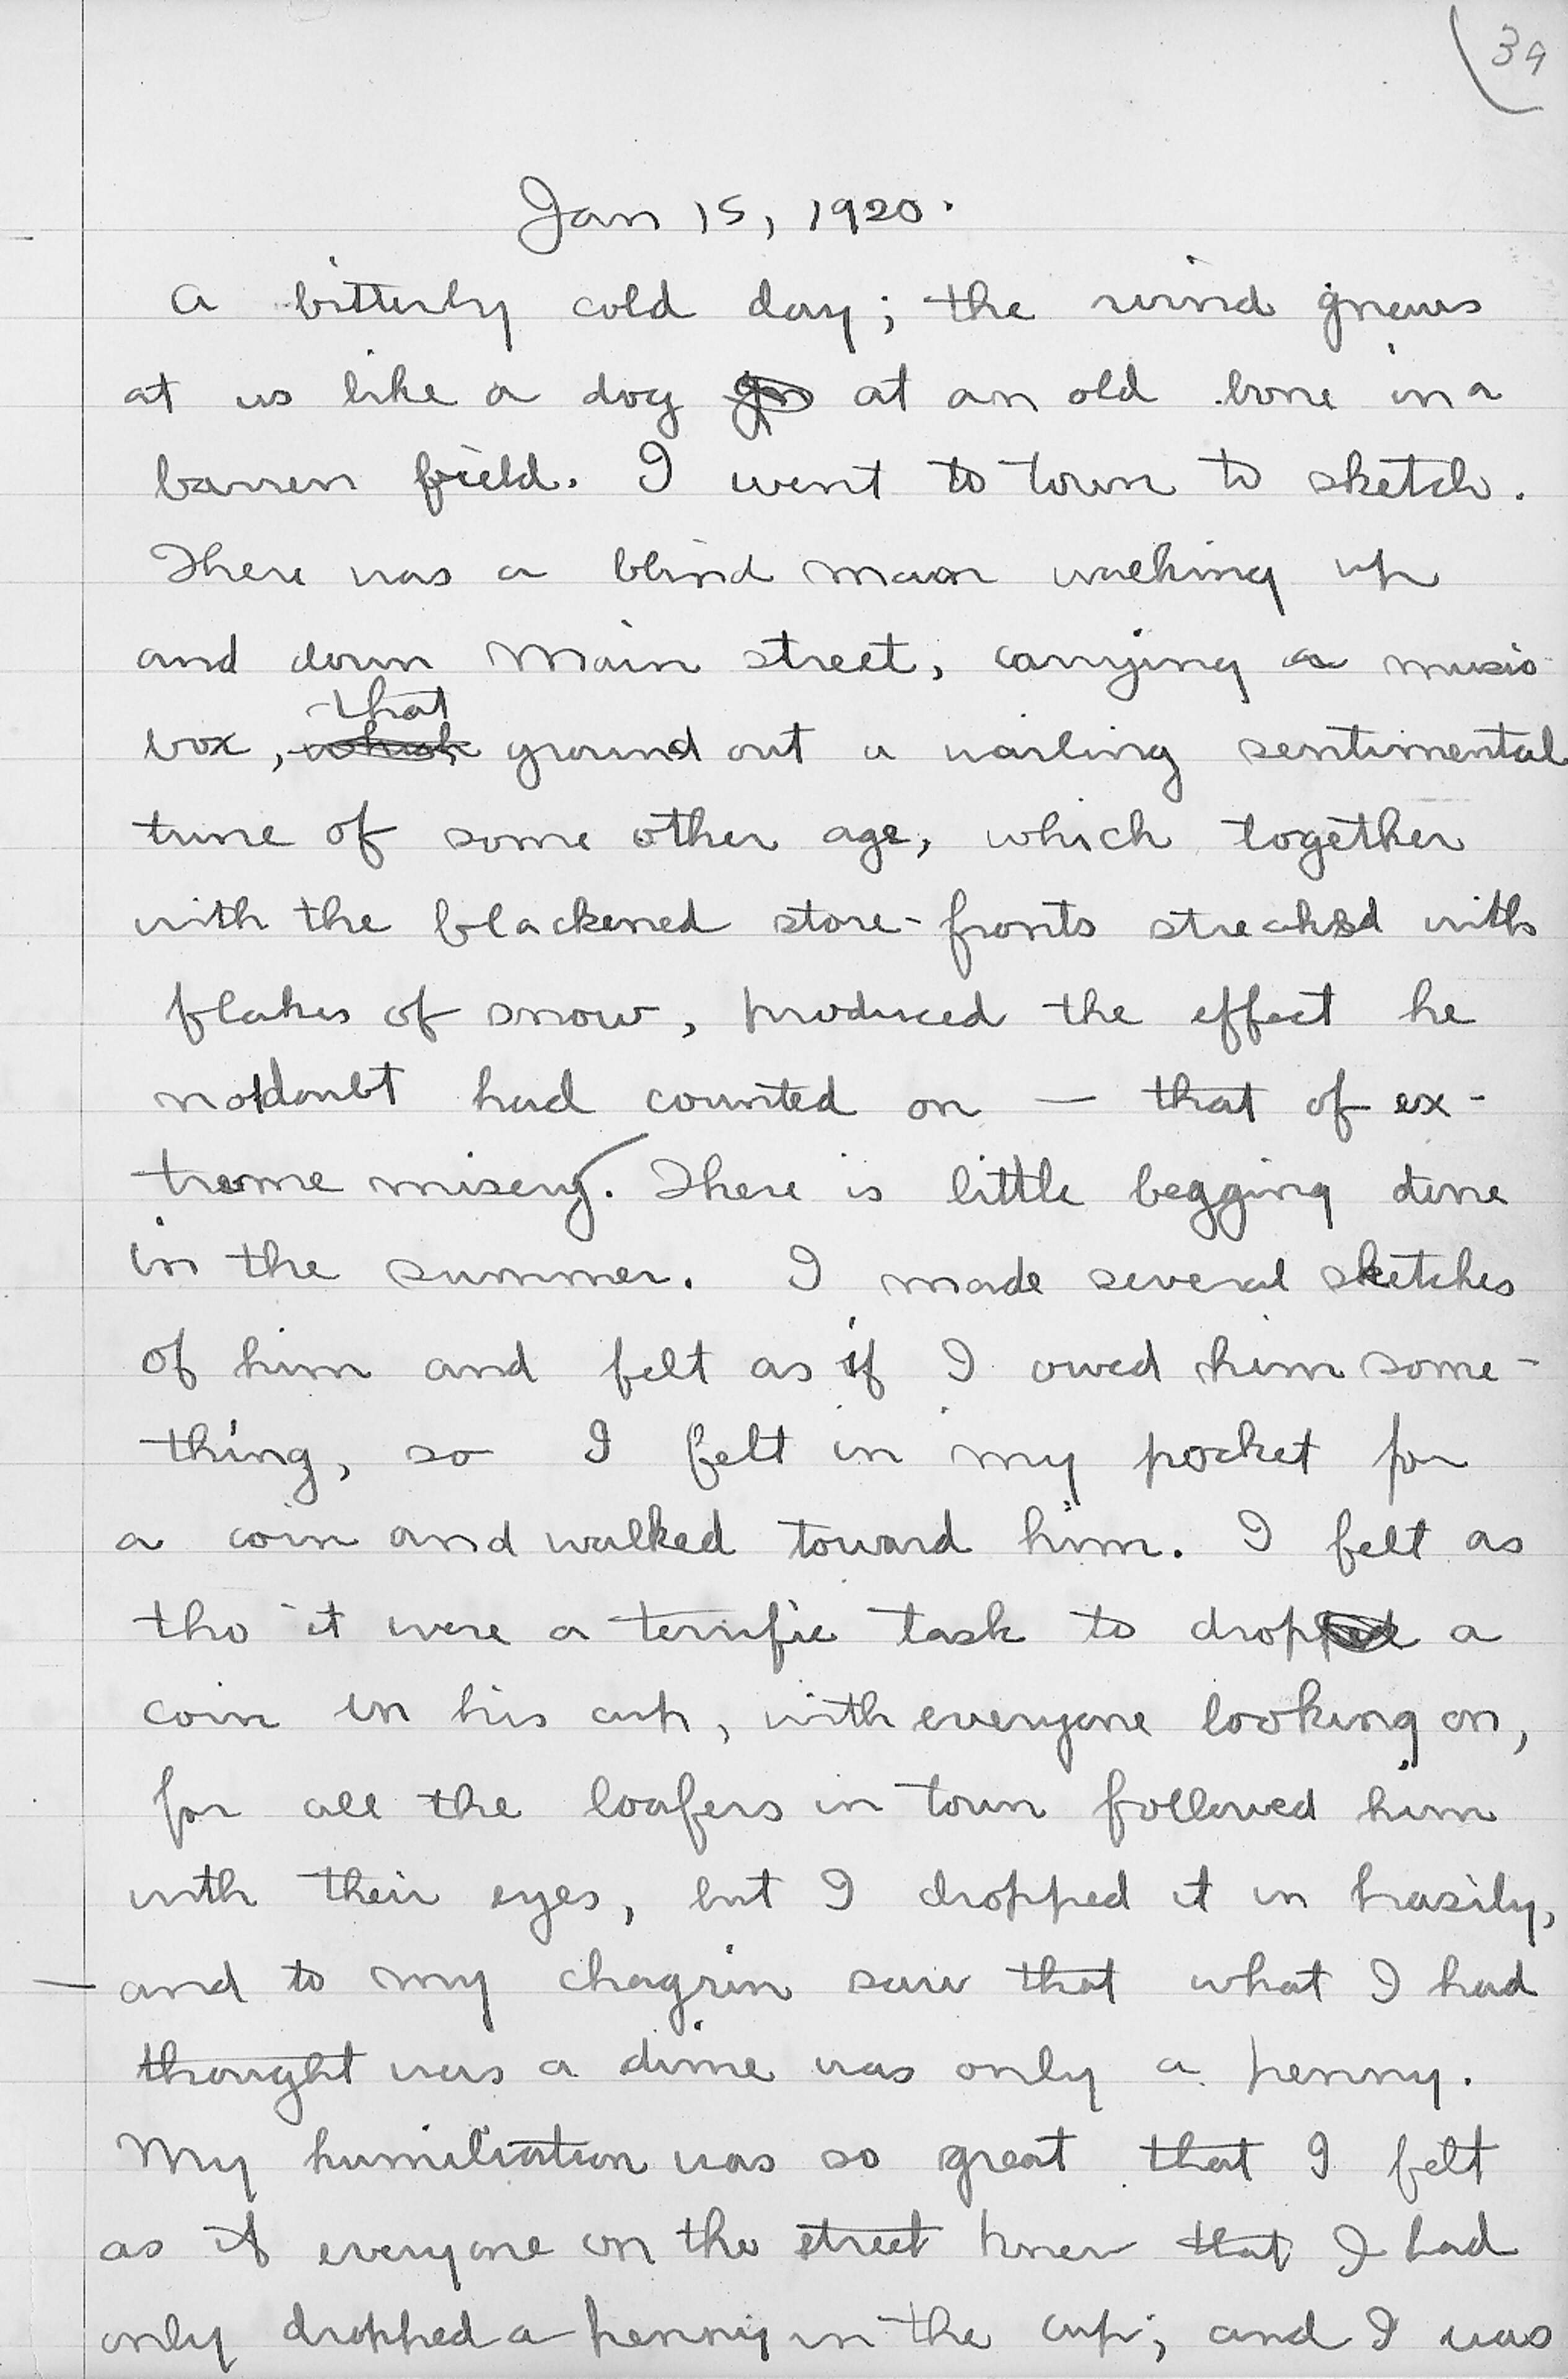 39
Jan 15, 1920.
A bitterly cold day; the wind gnaws
at us like a dog at an old bone in a
barren field. I went to town to sketch.
There was a blind man walking up
and down Main street, carrying a music
that
box, which ground out a wailing sentimental
tune of some other age, which together
with the blackened store-fronts streaked with
flakes of snow, produced the effect he
no doubt had counted on — that of ex-
treme misery. There is little begging done
in the summer. I made several sketches
of him and felt as if I owed him some-
thing, so I felt in my pocket for
a coin and walked toward him. I felt as
tho it were a terrific task to drop a
coin in his cup, with everyone looking on,
for all the loafers in town followed him
with their eyes, but I dropped it in hasily,
— and to my chagrin saw that what I had
thought was a dime was only a penny.
My humiliation was so great that I felt
as if everyone on the street knew that I had
only dropped a penny in the cup; and I was